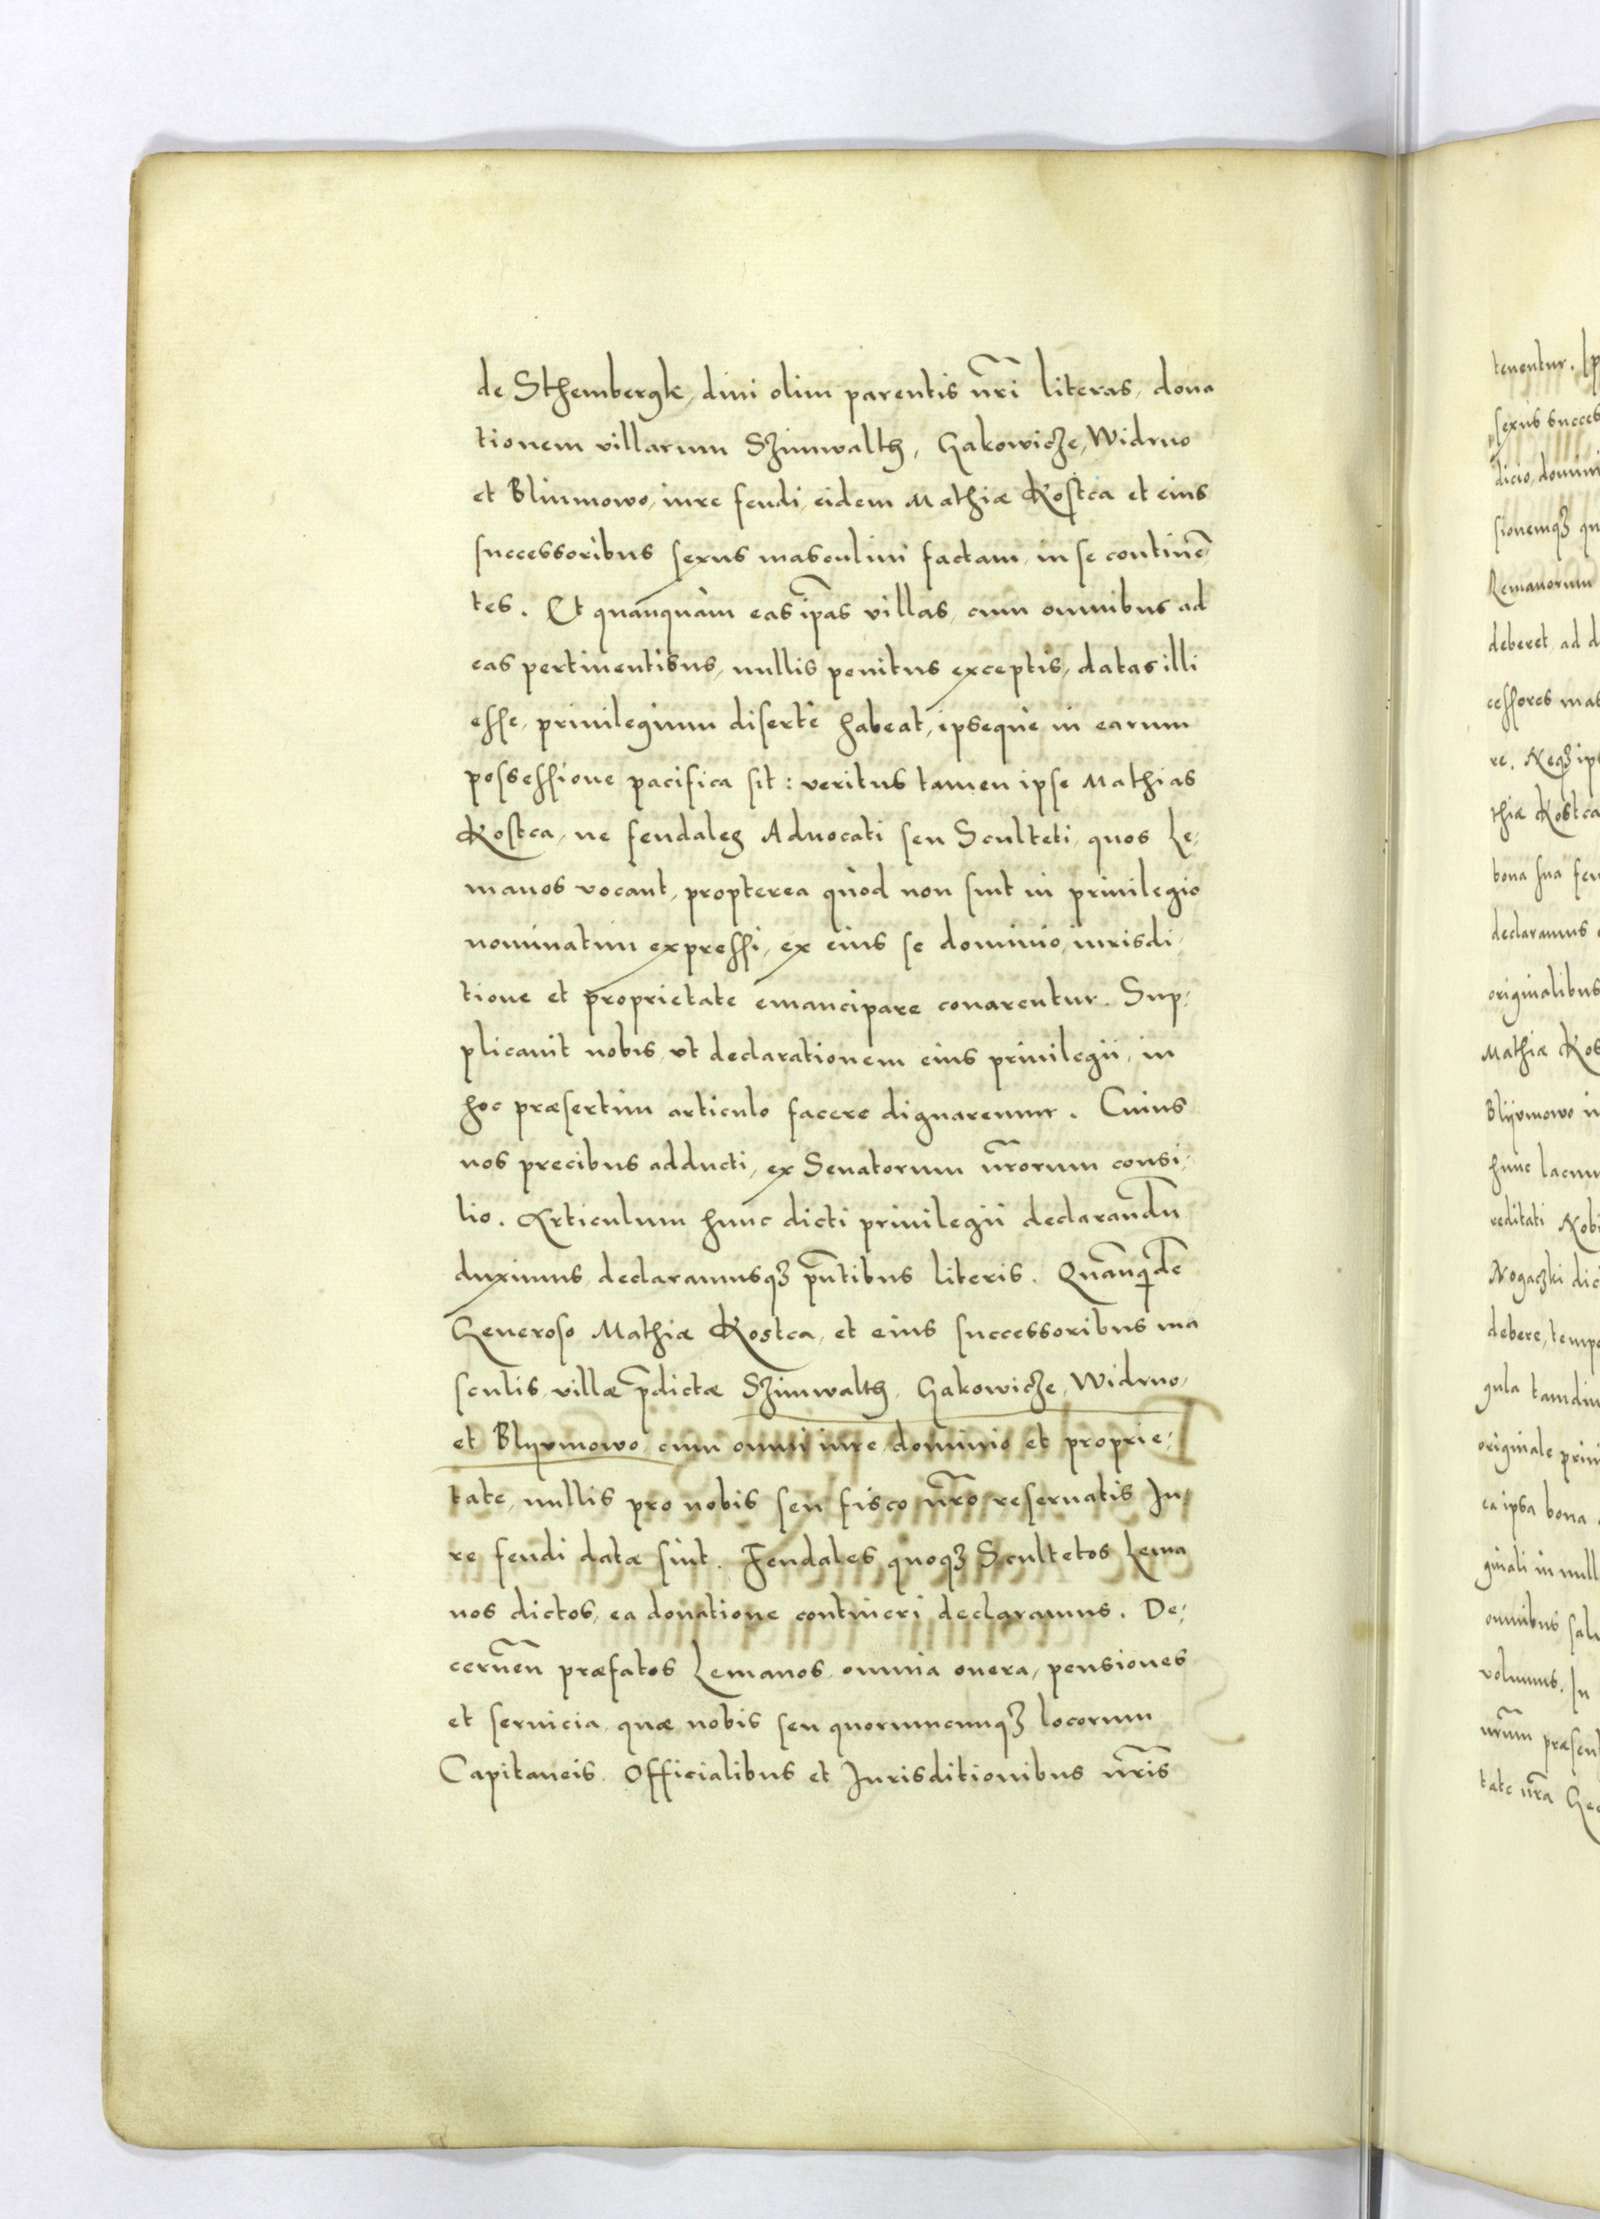 de Sthembergk, diui olim parentis nr̃i literas, dona
tionem villarum Szimwalth, Gakowicze, Widrno
et Blinmowo, iure feudi, eidem Mathiæ Kostca et eius
successoribus sexus masculini factam, in se continẽ,
tes. Et quanquam eas ip̃as villas, cum omnibus ad
eas pertinentibus, nullis penitus exceptis, datas illi
esse, priuilegium disertè habeat, ipseque in earum
possessione pacifica sit: veritus tamen ipse Mathias
Kostca, ne feudales Aduocati seu Sculteti, quos Le,
manos vocant, propterea quòd non sint in priuilegio
nominatim expressi, ex eius se dominio, iurisdi,
tione et proprietate emancipare conarentur. Sup,
plicauit nobis, vt declarationem eius priuilegii, in
hoc præsertim articulo facere dignaremur. Cuius
nos precibus adducti, ex Senatorum nr̃orum consi,
lio. Articulum hunc dicti priuilegii declarandũ
duximus, declaramusqꝫ pñtibus literis. Quanqidẽ
Generoso Mathiæ Kostca, et eius successoribus ma
sculis, villæ p̃dictæ Szimwalth, Gakowicze, Widrno,
et Blijvmowo, cum omni iure, dominio et proprie,
tate, nullis pro nobis seu fisco nr̃o reseruatis Iu,
re feudi datæ sint. Feudales quoqꝫ Scultetos Lema
nos dictos, ea donatione contineri declaramus. De,
cerneñ præfatos Lemanos, omnia onera, pensiones
et seruicia, quæ nobis seu quorumcunqꝫ locorum
Capitaneis, Officialibus et Iurisditionibus nr̃is
tenentur. Ip
sexus succes
dicio, domini
sionemqꝫ qu
Lemanorum
deberet, ad d
cessores mas
re. Neqꝫ ips
thiæ Kostca
bona sua feu
declaramus
originalibus
Mathiæ Kos
Blijvmowo in
hunc lacum
reditati Nobi
Nogaczki dic
debere, tempo
gula tamdiu
originale priui
ea ipsa bona
ginali in null
omnibus salu
volumus. In
nr̃um præsent
tate nr̃a Ge